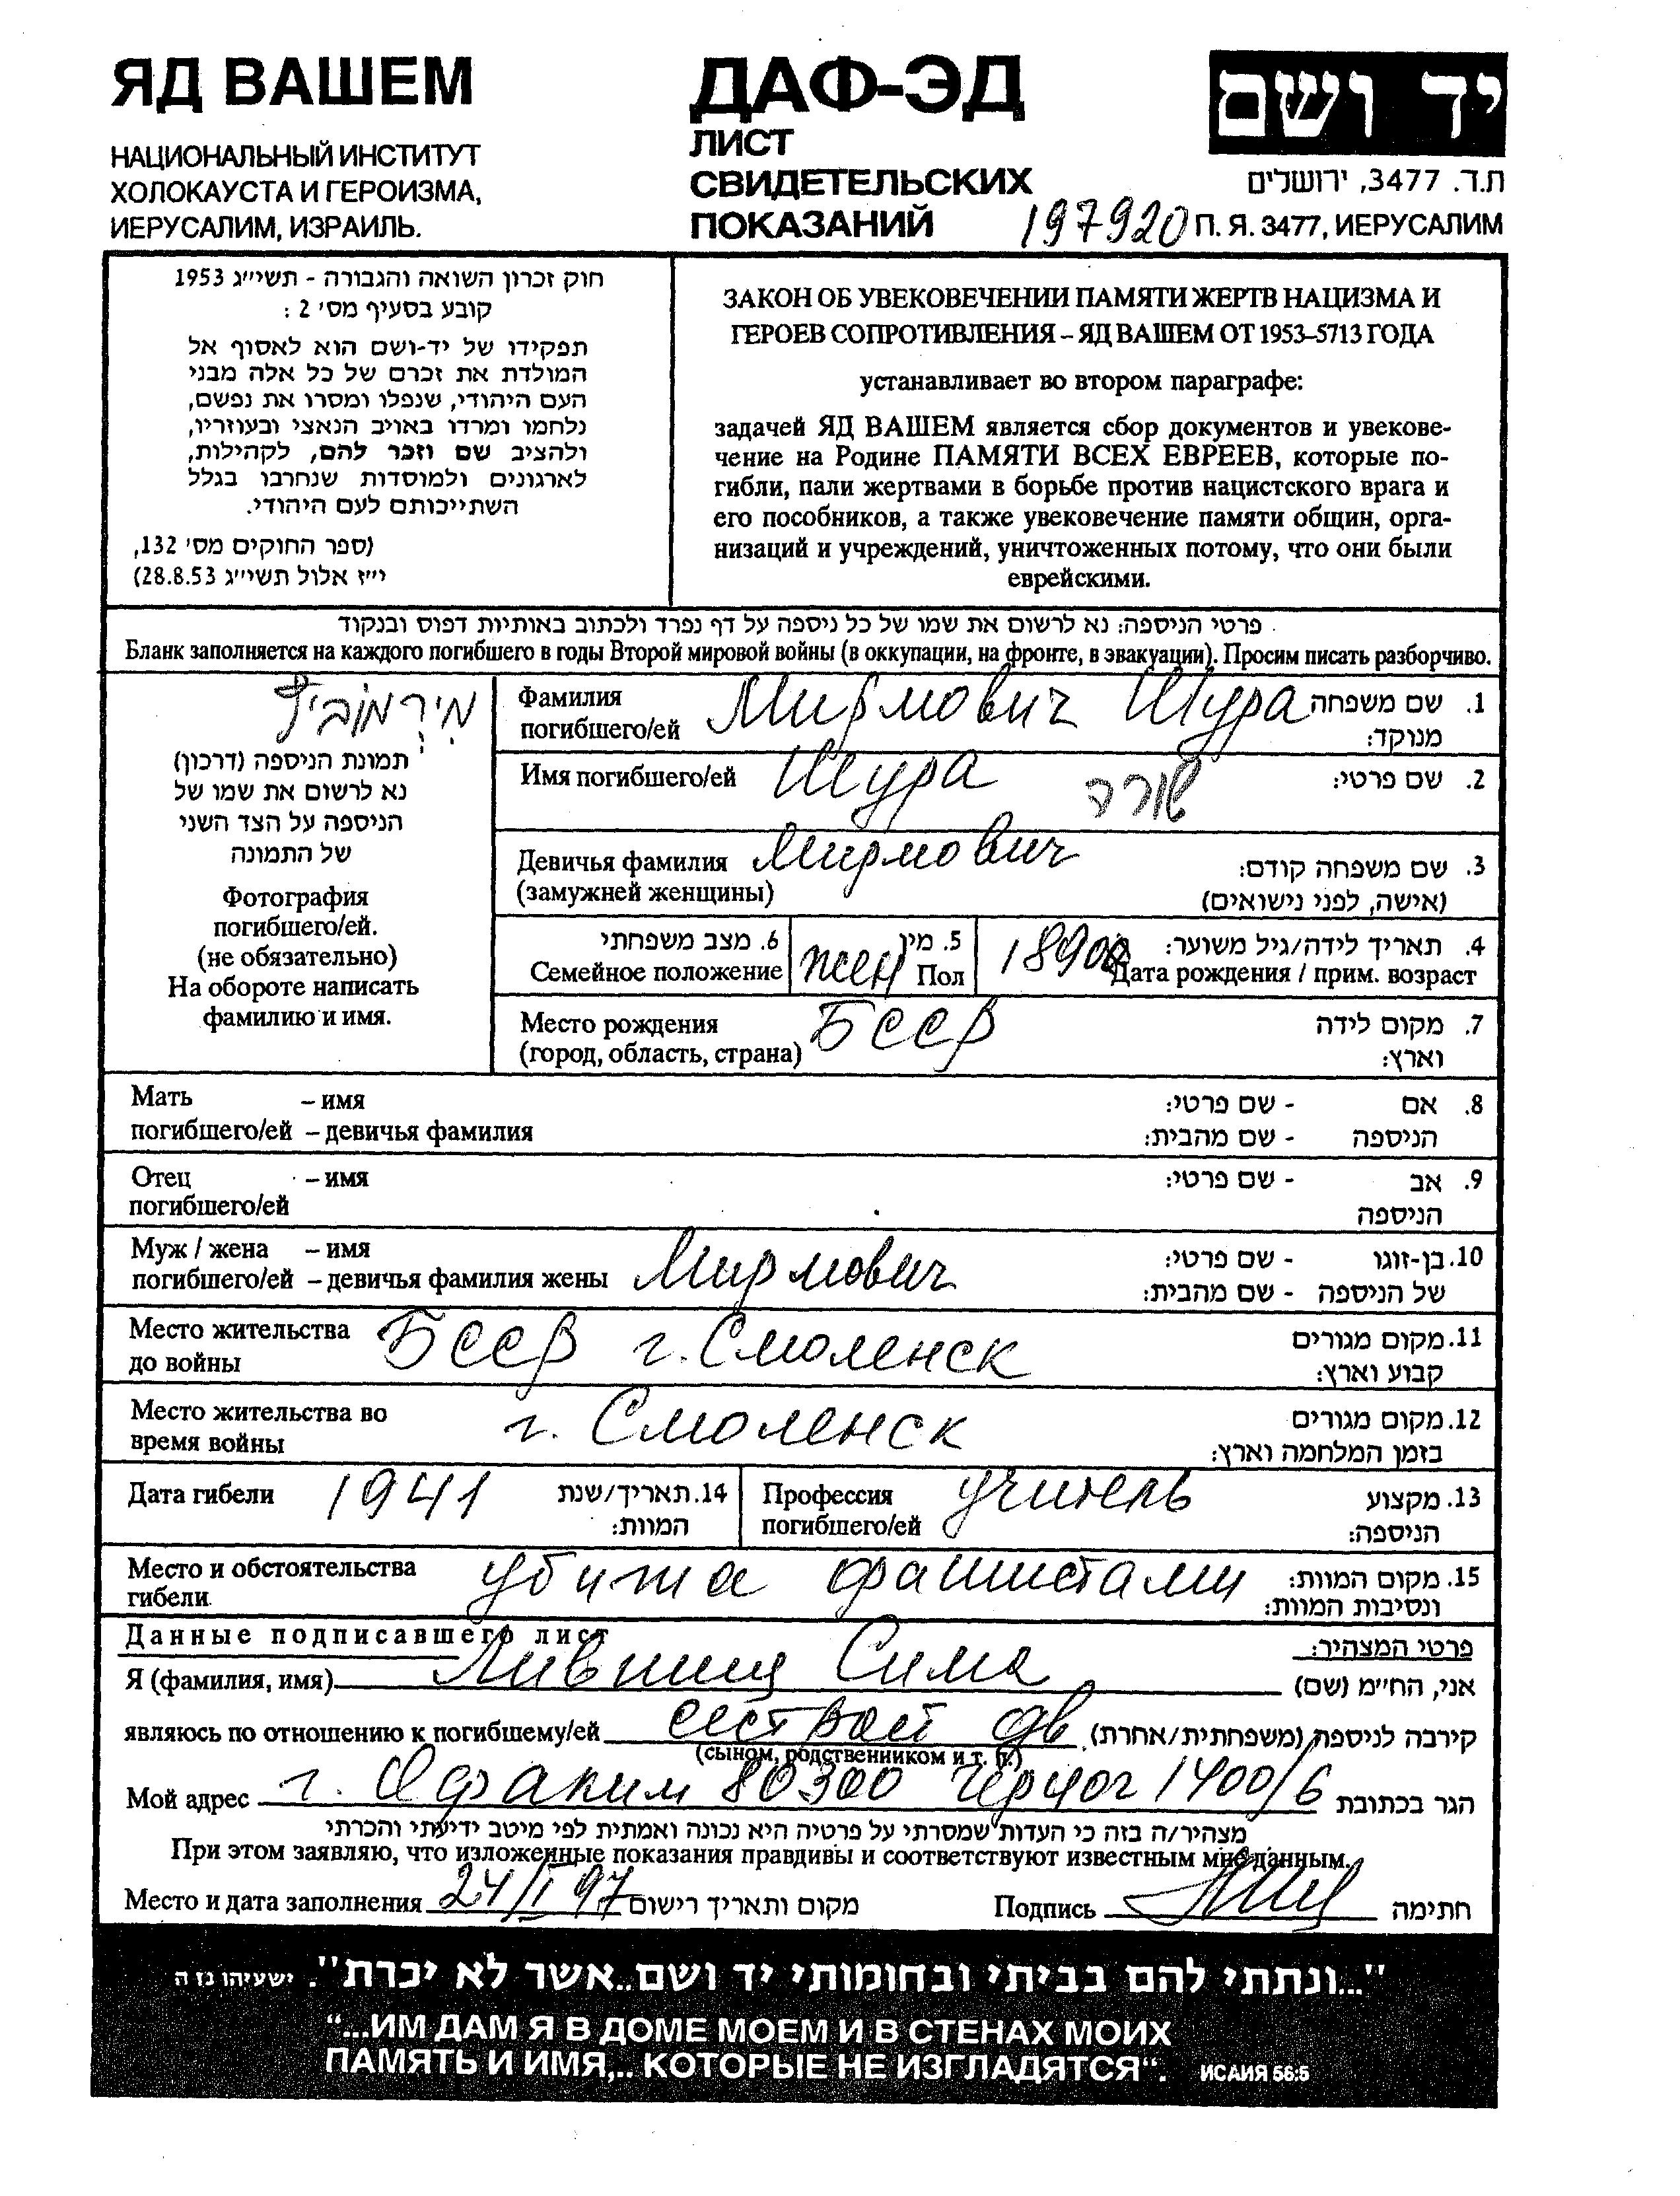 ЯД ВАШЕМ
НАЦИОНАЛЬНЫЙ ИНСТИТУТ
ХОЛОКАУСТА И ГЕРОИЗМА,
ИЕРУСАЛИМ, ИЗРАИЛЬ.
ДАФ-ЭД
ЛИСТ
СВИДЕТЕЛЬСКИХ
ПОКАЗАНИЙ
197920
יד ושם
ת.ד. 3477, ירושלים
П. Я. 3477, ИЕРУСАЛИМ
חוק זכרון השואה והגבורה - תשי״ג 1953
קובע בסעיף מס׳ 2 :
תפקידו של יד-ושם הוא לאסוף אל
המולדת את זכרם של כל אלה מבני
העם היהודי, שנפלו ומסרו את נפשם,
נלחמו ומרדו באויב הנאצי ובעוזריו,
ולהציב שם וזכר להם, לקהילות,
לארגונים ולמוסדות שנחרבו בגלל
השתייכותם לעם היהודי.
(ספר החוקים מס׳ 132,
י״ז אלול תשי״ג 28.8.53)
ЗАКОН ОБ УВЕКОВЕЧЕНИИ ПАМЯТИ ЖЕРТВ НАЦИЗМА И
ГЕРОЕВ СОПРОТИВЛЕНИЯ – ЯД ВАШЕМ ОТ 1953–5713 ГОДА
устанавливает во втором параграфе:
задачей ЯД ВАШЕМ является сбор документов и увекове-
чение на Родине ПАМЯТИ ВСЕХ ЕВРЕЕВ, которые по-
гибли, пали жертвами в борьбе против нацистского врага и
его пособников, а также увековечение памяти общин, орга-
низаций и учреждений, уничтоженных потому, что они были
еврейскими.
פרטי הניספה: נא לרשום את שמו של כל ניספה על דף נפרד ולכתוב באותיות דפוס ובנקוד
Бланк заполняется на каждого погибшего в годы Второй мировой войны (в оккупации, на фронте, в эвакуации). Просим писать разборчиво.
מִירְמוֹבִיץ
תמונת הניספה (דרכון)
נא לרשום את שמו של
הניספה על הצד השני
של התמונה
Фотография
погибшего/ей.
(не обязательно)
На обороте написать
фамилию и имя.
Фамилия Мирмович Шура 1. שם משפחה
погибшего/ей מנוקד:
Имя погибшего/ей Шура שורה 2. שם פרטי:
Девичья фамилия Мирмович 3. שם משפחה קודם:
(замужней женщины) (אישה, לפני נישואים)
6. מצב משפחתי 5. מין 4. תאריך לידה/גיל משוער:
Семейное положение жен Пол Дата рождения / прим. возраст
Место рождения БССР 7. מקום לידה
(город, область, страна) וארץ:
Мать – имя 8. אם - שם פרטי:
погибшего/ей – девичья фамилия הניספה - שם מהבית:
Отец – имя 9. אב - שם פרטי:
погибшего/ей הניספה
Муж / жена – имя 10. בן-זוגו - שם פרטי:
погибшего/ей – девичья фамилия жены Мирмович של הניספה - שם מהבית:
Место жительства БССР г. Смоленск 11. מקום מגורים
до войны קבוע וארץ:
Место жительства во г. Смоленск 12. מקום מגורים
время войны בזמן המלחמה וארץ:
Дата гибели 1941 14. תאריך/שנת Профессия учитель 13. מקצוע
המוות: погибшего/ей הניספה:
Место и обстоятельства убита фашистами 15. מקום המוות:
гибели. ונסיבות המוות:
Данные подписавшего лист פרטי המצהיר:
Я (фамилия, имя) Лившиц Сима אני, הח״מ (שם)
являюсь по отношению к погибшему/ей сестрой дв קירבה לניספה (משפחתית/אחרת)
(сыном, родственником и т. п.)
Мой адрес г. Офаким 80300 1400/6 הגר בכתובת
מצהיר/ה בזה כי העדות שמסרתי על פרטיה היא נכונה ואמתית לפי מיטב ידיעתי והכרתי
При этом заявляю, что изложенные показания правдивы и соответствуют известным мне данным.
Место и дата заполнения 24/I 97 מקום ותאריך רישום Подпись חתימה
"...ונתתי להם בביתי ובחומותי יד ושם..אשר לא יכרת". ישעיהו נז ה
“...ИМ ДАМ Я В ДОМЕ МОЕМ И В СТЕНАХ МОИХ
ПАМЯТЬ И ИМЯ,.. КОТОРЫЕ НЕ ИЗГЛАДЯТСЯ“. ИСАИЯ 56:5